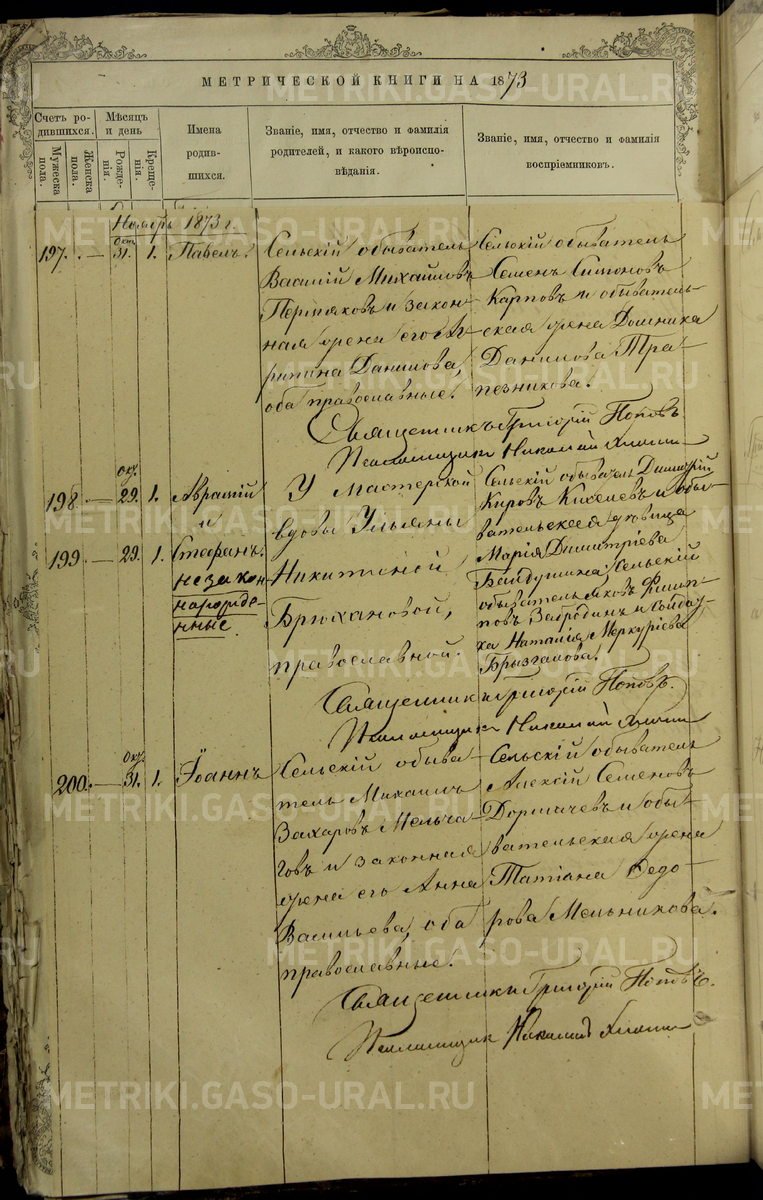 МЕТРИЧЕСКОЙ КНИГИ НА 1873
Счетъ ро-
дившихся.
Мужеска
пола.
Женска
пола.
Мѣсяцъ
и день
Рожде-
нія.
Креще-
нія.
Имена
родив-
шихся.
Званіе, имя, отчество и фамилія
родителей, и какого вѣроиспо-
вѣданія.
Званіе, имя, отчество и фамилія
воспріемниковъ.
Ноябрь 1873 г.
197. — Окт 31. 1. Павелъ.
Сельскій обыватель
Василій Михайловъ
Пермяковъ и закон-
ная жена его
Данилова,
оба православные.
Сельскій обыватель
Семенъ Симоновъ
Карповъ и обыватель-
ская жена Домника
Данилова Тра-
пезникова.
Священникъ Григорій Поповъ
Псаломщикъ Николай
198. — Окт. 29. 1. Авраамій
и
199. — 29. 1. Стефанъ.
незакон
нарожде-
нные.
У мастерской
вдовы Ульяны
Никитиной
Брюхановой,
православной.
Сельскій обыватель Димитрій
Кировъ Киселевъ и обы-
вательская дѣвица
Марія Димитріева
Байдушина Сельскій
обыватель Яковъ Филип-
повъ и
Наталія Меркуріева
Брызгалова.
Священникъ Григорій Поповъ.
Псаломщикъ Николай
200. — Окт. 31. 1. Іоаннъ
Сельскій обыва-
тель Михаилъ
Захаровъ Мельча-
говъ и законная
жена его Анна
Васильева, оба
православные.
Сельскій обыватель
Алексій Семеновъ
Дормачевъ и обы-
вательская жена
Татіана Ѳедо-
рова Мельникова.
Священникъ Григорій Поповъ.
Псаломщикъ Николай
METRIKI.GASO-URAL.RU